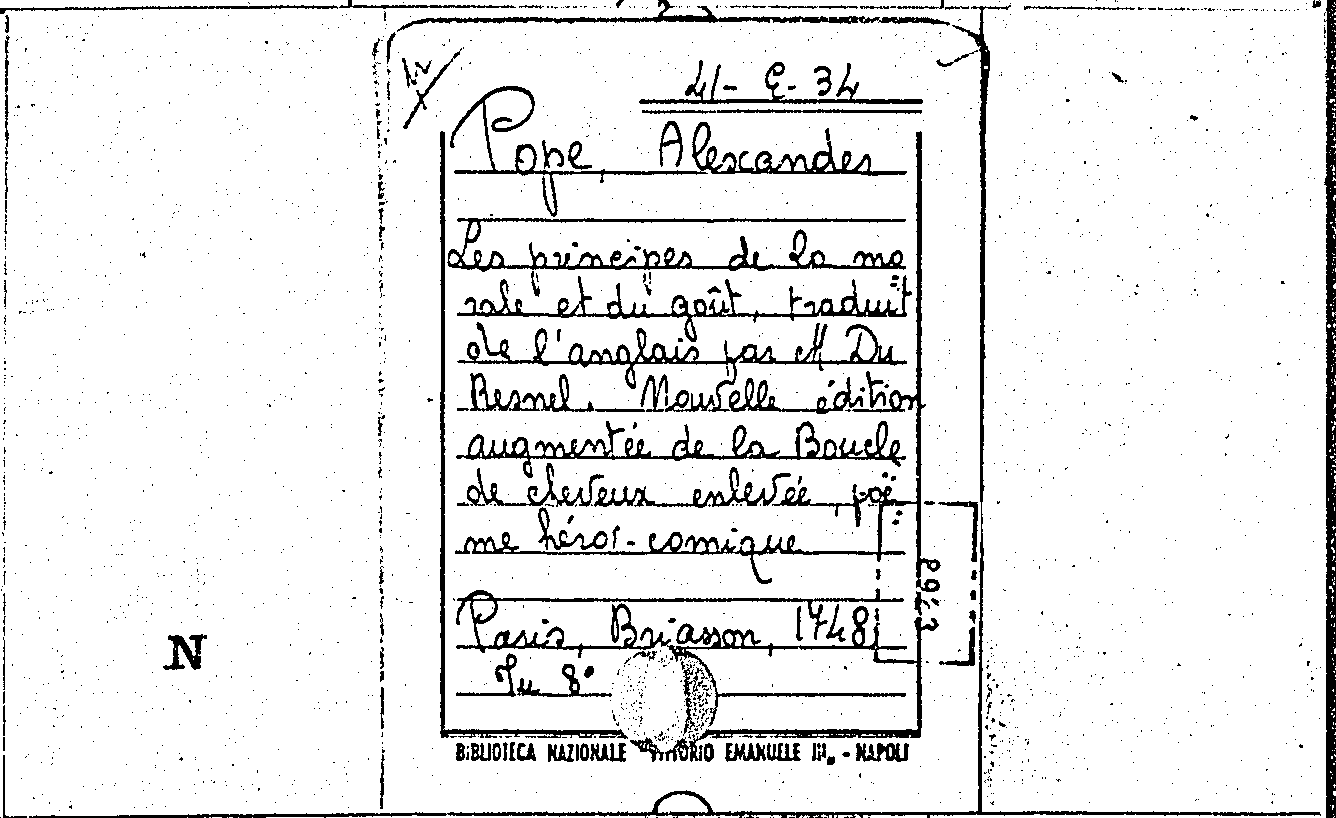 41-E-34
Pope, Alexander
Les principes de la mo
rale et du goût, traduit
de l'anglais par M Du
Resnel. Nouvelle édition
augmentée de la Boucle
de cheveux enlevée, poë
me héroï-comique
Paris, Briasson, 1748,
In 8°
BIBLIOTECA NAZIONALE VITTORIO EMANUELE III. - NAPOLI
N